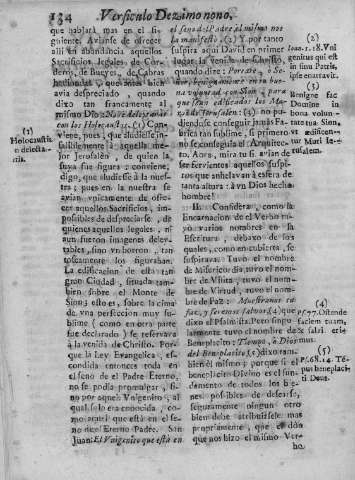 134 Versiculo Dezimo nono.
que hablarà, mas en el siguiente: Avianse de ofrecer
alli en abundancia aquellos
Sacrificios legales, de Corderos, de Bueyes, de Cabras
avia despreciado, quando
dixo tan francamente al
mismo Dios: No te
con los Holocaustos. (1) Conviene, pues, que
aquella mejor Jerusalèn, de quien la
suya fue figura: conviene,
digo, que
à la nuestra; pues en la nuestra se
avian vnicamente de ofrecer aquellos Sacrificios, imposibles de despreciarse, de
quienes aquellos legales, ni
fueron imagenes delevtables, sino vn borron, tan
toscamente los figuraban.
La edificacion de esta tan
gran Ciudad, situada tambien sobre el Monte de
Sion; esto es, sobre la cima
de vna perfeccion muy sublime (como en otra parte
fue declarado) se reservava
à la venida de Christo. Porque la Ley Evangelica, escondida entonces toda en
el seno de el Padre Eterno,
no se podia promulgar, sino por aquel Vnigenito, al
qual solo era conocida, como que era en el mismo
seno de el Padre. San
Juan: El Vnigenito que està en
(1)
Holocaustis
delectaris.
el seno del Padre, el mismo nos
lo manifestò. (2) Y por tanto
suspira aqui David en primer
lugar la venida de Christo,
quando dize:
na voluntad con Sion, para
que sean edificados los Muros de Jerusalèn. (3) No pudiendose construir jamàs Fabrica tan sublime, si primero
no se conseguia el Arquitecto. Aora, mira tu, si avian de
ser fervientes aquellos suspiros
tanta altura: à vn Dios hecho
hombre!
II. Considera, como la
Encarnacion de el Verbo tuvo varios nombres en la
Escritura, debaxo de los
quales, como encubierta, se
suspirava. Tuvo el nombre
de Misericordia, tuvo el nombre de Visita, tuvo el nombre de Virtud, tuvo el nombre de Paz: Muestranos tu
faz, y seremos salvos, (4) que
dixo el Psalmista. Pero singularmente tuvo el nombre de
Beneplacito: Tiempo, ò Dios,
del Beneplacito, (5) dixo tambien el mismo; porque si el
Beneplacito Divino es el fundamento de todos los bienes posibles de desearse,
seguramente ningun otro
bien debe atribuirsele mas
propriamente, que el don
que nos hizo el mismo Verbo,
(2)
Ioan. 1. 18. Vnigenitus qui est
in sinu Patris,
ipse enarravit.
(3)
Benigne fac
Domine in
bona voluntate tua Sion,
vt ædificentur Muri Ierusalem.
(4)
Ostende
faciem tuam,
& salvi erimus.
(5)
Ps. 68. 14. Tempus beneplaciti Deus.